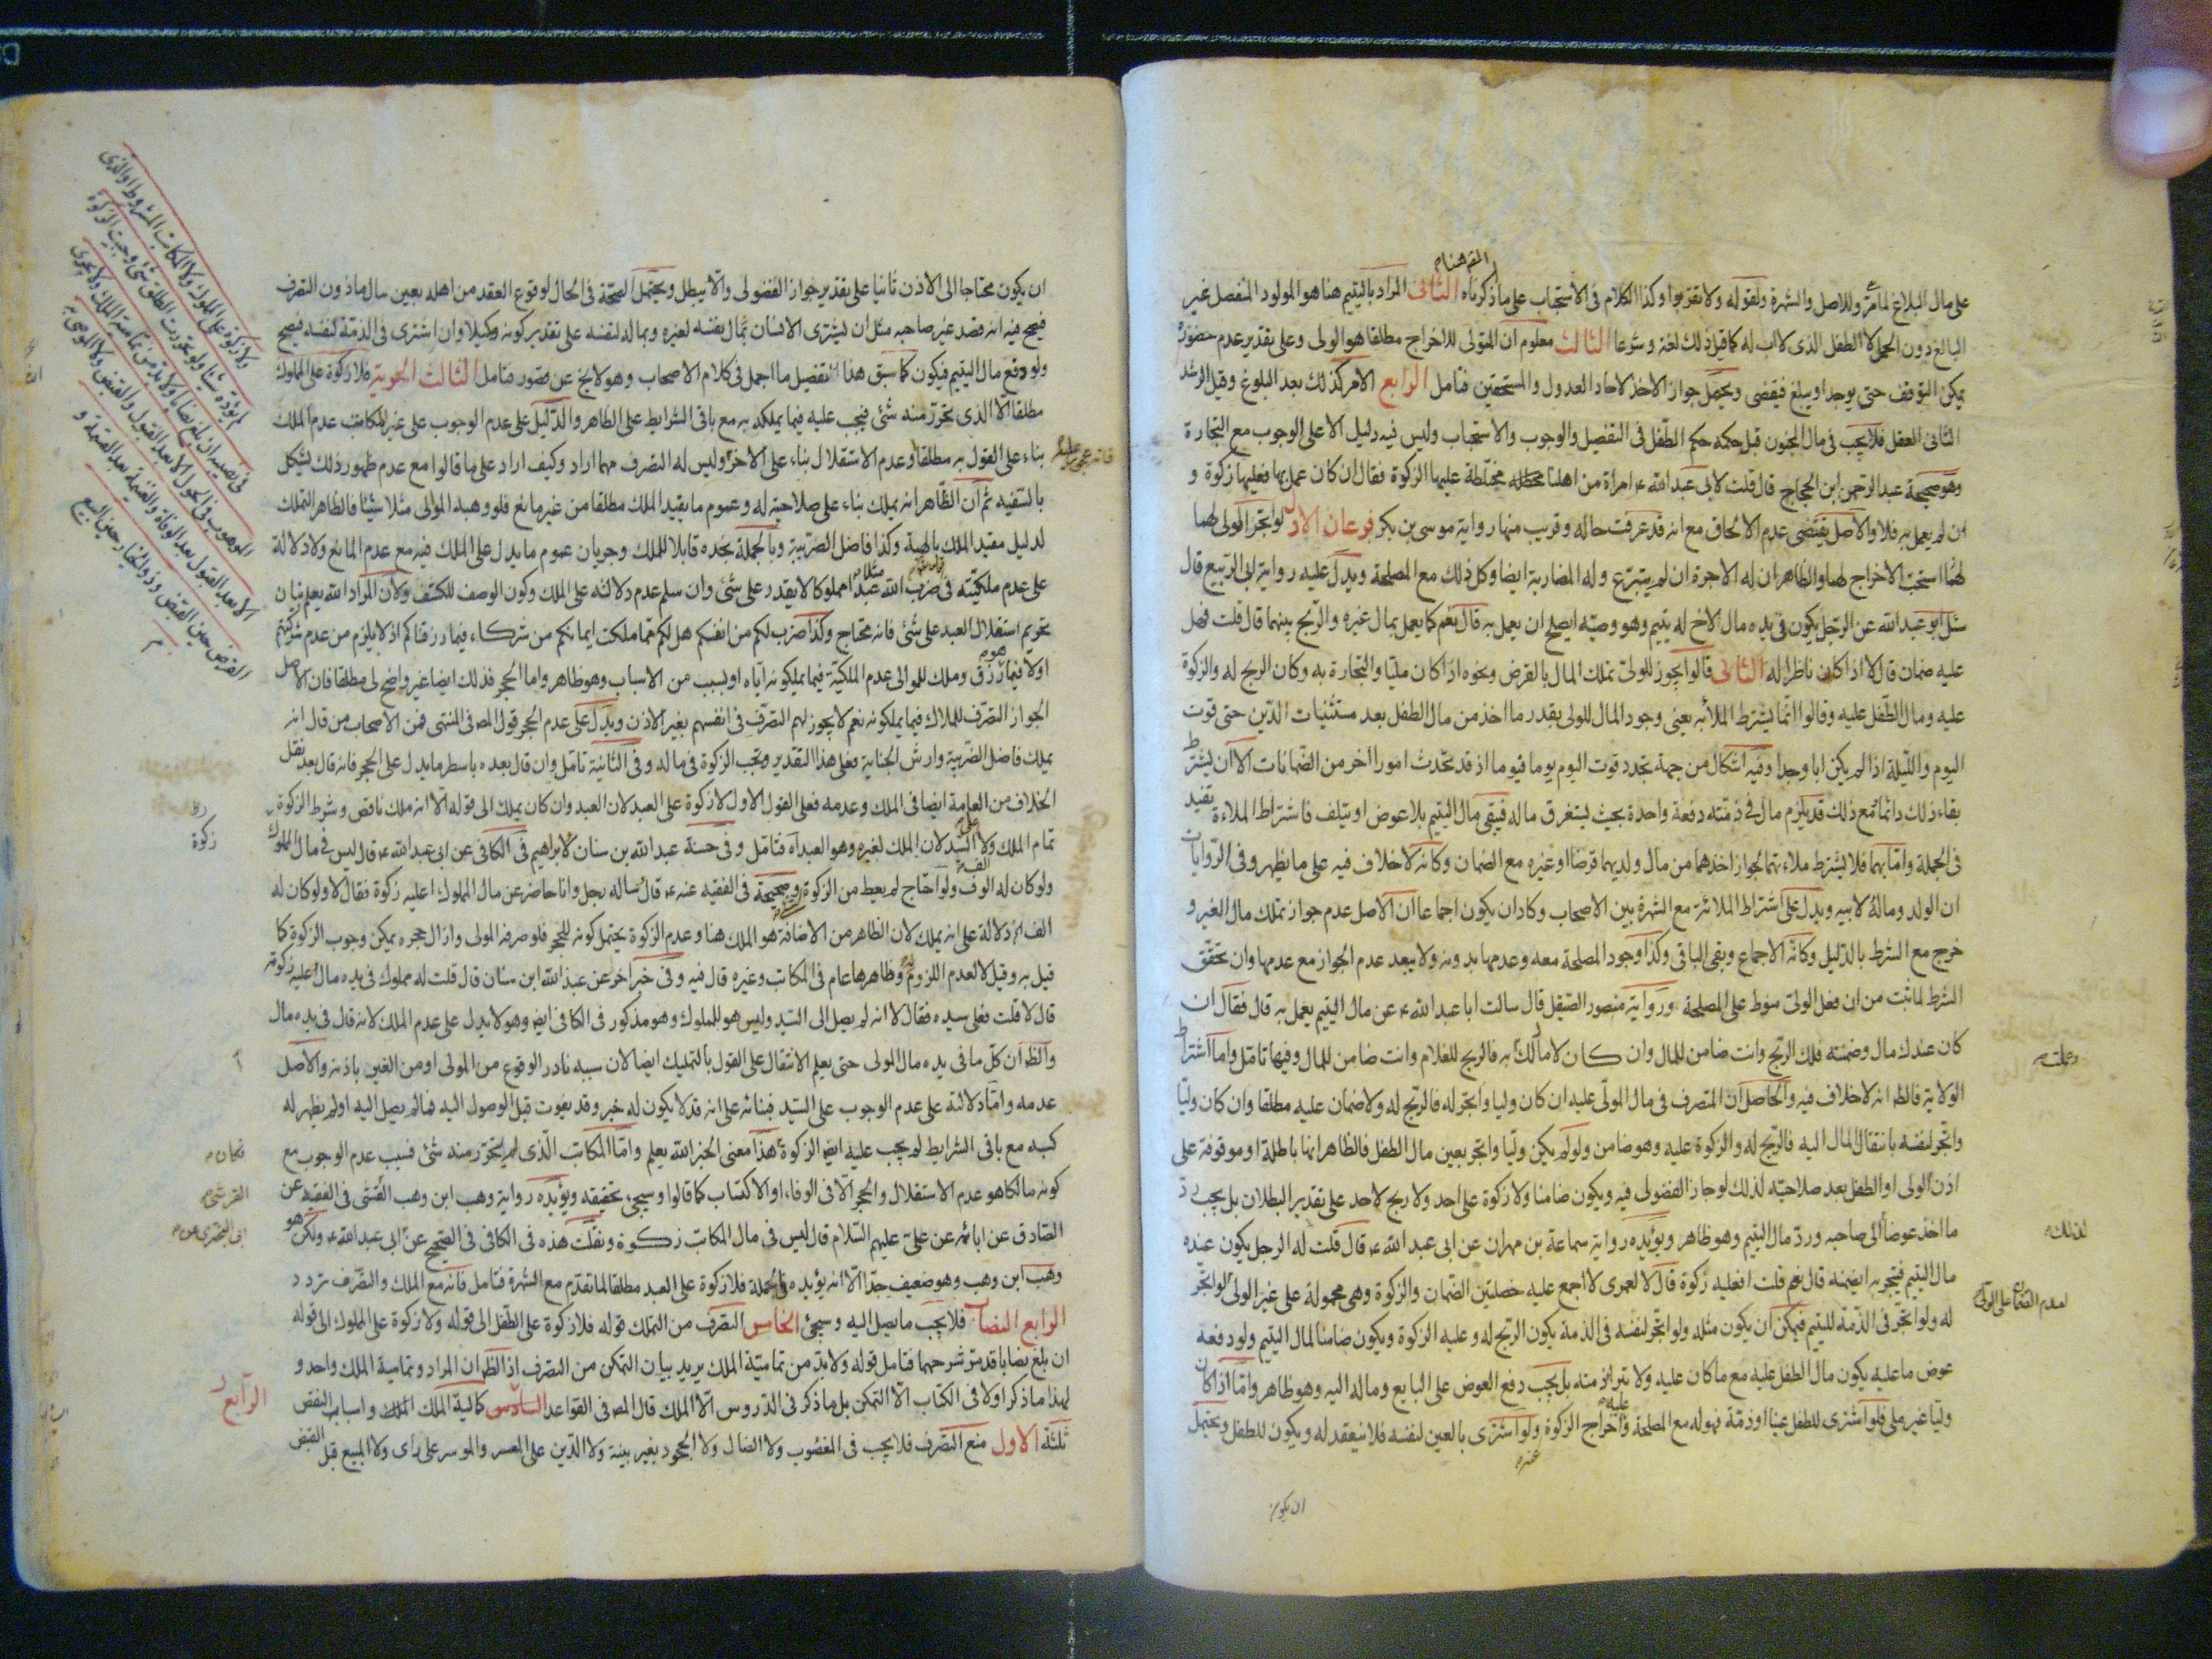 على مال البلاغ لما مر وللاصل والشهرة ولقوله ولا تقربوا وكذا الكلام فى الاستحباب على ما ذكرناه الثانى المراد باليتيم هنا هو المولود المنفصل غير
البالغ دون الحمل لا الطفل الذى لا اب له كما قيل ذلك لغة وشرعا الثالث معلوم ان المتولى للاخراج مطلقا هو الولى وعلى تقدير عدم حضوره
يمكن التوقف حتى يوجد او يبلغ فيقضى ويحتمل جواز الاخذ لاحاد العدول والمستحقين فتامل الرابع الامر كذلك بعد البلوغ وقبل الرشد
الثانى العقل فلا يجب فى مال المجنون قبل حكمه حكم الطفل فى التفصيل والوجوب والاستحباب وليس فيه دليل الا على الوجوب مع التجارة
وهو صحيحة عبد الرحمن ابن الحجاج قال قلت لابى عبد الله ع امراة من اهلنا مختلطة عليها الزكوة فقال ان كان عمل بها فعليها زكوة و
ان لم يعمل به فلا والاصل يقتضى عدم الالحاق مع انه قد عرفت حاله وقريب منها رواية موسى بن بكر فرعان الاول لو اتجر الولى لهما
لهما استحب الاخراج لهما والظاهر ان له الاجرة ان لم يتبرع وله المضاربة ايضا وكل ذلك مع المصلحة ويدل عليه رواية ابى الربيع قال
سئل ابو عبد الله عن الرجل يكون فى يده مال لاخ له يتيم وهو وصيه ايصلح ان يعمل به قال نعم كما يعمل بمال غيره والربح بينهما قال قلت فهل
عليه ضمان قال لا اذا كان ناظرا له الثانى قالوا يجوز للولى تملك المال بالقرض ونحوه اذا كان مليا والتجارة به وكان الربح له والزكوة
عليه ومال الطفل عليه وقالوا انما يشترط الملأ به يعنى وجود المال للولى بقدر ما اخذ من مال الطفل بعد مستثنيات الدين حتى قوت
اليوم والليلة اذا لم يكن ابا وجدا وفيه اشكال من جهة تجدد قوت اليوم يوما فيوما اذ قد تحدث امورا اخر من الضمانات الا ان يشترط
بقاء ذلك دائما مع ذلك قد يلزم مال فى ذمته دفعة واحدة بحيث يستغرق ماله فيبقى مال اليتيم بلا عوض او يتلف فاشتراط الملاءة تفيد
فى الجملة واما بهما فلا يشترط ملاءتهما لجواز اخذهما من مال ولديهما قرضا او غيره مع الضمان وكانه لا خلاف فيه على ما يظهر وفى الروايات
ان الولد وماله لابيه ويدل على اشتراط الملائة مع الشهرة بين الاصحاب وكاد ان يكون اجماعا ان الاصل عدم جواز تملك مال الغير و
خرج مع الشرط بالدليل وكانه الاجماع وبقى الباقى وكذا وجود المصلحة معه وعدمها بدونه ولا يبعد عدم الجواز مع عدمها وان تحقق
الشرط لما ثبت من ان فعل الولى منوط على المصلحة ورواية منصور الصيقل قال سالت ابا عبد الله ع عن مال اليتيم يعمل به قال فقال ان
كان عندك مال وضمنته فلك الربح وانت ضامن للمال وان كان لا مال لك به فالربح للغلام وانت ضامن للمال وفيها تامل واما اشتراط
الولاية فالظ انه لا خلاف فيه والحاصل ان المتصرف فى مال المولى عليه ان كان وليا واتجر له فالربح له ولا ضمان عليه مطلقا وان كان وليا
واتجر لنفسه بانتقال المال اليه فالربح له والزكوة عليه وهو ضامن ولو لم يكن وليا واتجر بعين مال الطفل فالظاهر انها باطلة او موقوفة على
اذن الولى او الطفل بعد صلاحيته لذلك لو جاز الفضولى فيه ويكون ضامنا ولا زكوة على احد ولا ربح لاحد على تقدير البطلان بل يجب رد
ما اخذ عوضا الى صاحبه ورد مال اليتيم وهو ظاهر ويؤيده رواية سماعة بن مهران عن ابى عبد الله ع قال قلت له الرجل يكون عنده
مال اليتيم فيتجر به ايضمنه قال نعم قلت افعليه زكوة قال لا لعمرى لا اجمع عليه خصلتين الضمان والزكوة وهى محمولة على غير الولى لو اتجر
له ولو اتجر فى الذمة لليتيم فيمكن ان يكون مثله ولو اتجر لنفسه فى الذمة يكون الربح له وعليه الزكوة ويكون ضامنا لمال اليتيم ولو دفعه
عوض ما عليه يكون مال الطفل عليه مع ما كان عليه ولا تبرا ذمته بل يجب دفع العوض على البايع وماله اليه وهو ظاهر واما اذا كان
وليا غير ملى فلو اشترى للطفل عينا او ذمة فهو له مع المصلحة واخراج الزكوة ولو اشترى بالعين لنفسه فلا ينعقد له ويكون للطفل ويحتمل
ان يكون
ان يكون محتاجا الى الاذن ثانيا على تقدير جواز الفضولى والا يبطل ويحتمل الصحة فى الحال لوقوع العقد من اهله بعين مال ماذون التصرف
فيصح فيه انه قصد غير صاحبه مثل ان يشترى الانسان بمال نفسه لغيره وبماله لنفسه على تقدير كونه وكيلا وان اشترى فى الذمة لنفسه فيصح
ولو دفع مال اليتيم فيكون كما سبق هذا تفصيل ما اجمل فى كلام الاصحاب وهو لا يخ عن قصور فتامل الثالث الحرية فلا زكوة على المملوك
مطلقا الا الذى تحرر منه شئ فيجب عليه فيما يملكه به مع باقى الشرايط على الظاهر والدليل على عدم الوجوب على غير المكاتب عدم الملك
بناء على القول به مطلقا وعدم الاستقلال بناء على الاخر وليس له التصرف مهما اراد وكيف اراد على ما قالوا مع عدم ظهور ذلك ليشكل
بالسفيه ثم ان الظاهر انه يملك بناء على صلاحيته له وعموم ما يفيد الملك مطلقا من غير مانع فلو وهبه المولى مثلا شيئا فالظاهر التملك
لدليل مفيد الملك بالهبة وكذا فاضل الضريبة وبالجملة نجده قابلا للملك وجريان عموم ما يدل على الملك فيه مع عدم المانع ولا دلالة
على عدم ملكيته فى ضرب الله مثلا عبدا مملوكا لا يقدر على شئ وان سلم عدم دلالته على الملك وكون الوصف للكشف ولان المراد الله يعلم بيان
تحريم استقلال العبد على شئ فانه محتاج وكذا ضرب لكم من انفسكم هل لكم مما ملكت ايمانكم من شركاء فيما رزقناكم اذ لا يلزم من عدم شركتهم
اولا فيما رزق وملك للموالى عدم الملكية فيما يملكونه اياه او بسبب من الاسباب وهو ظاهر واما الحجر فذلك ايضا غير واضح لى مطلقا فان الاصل
الجواز التصرف للملاك فيما يملكونه نعم لا يجوز لهم التصرف فى انفسهم بغير الاذن ويدل على عدم الحجر قول المص فى المنتهى فمن الاصحاب من قال انه
يملك فاضل الضريبة وارش الجناية فعلى هذا التقدير وتجب الزكوة فى ماله وفى الثانية تامل وان قال بعده باسطر ما يدل على الحجر فانه قال بعد نقل
الخلاف من العامة ايضا فى الملك وعدمه فعلى القول الاول لا زكوة على العبد لان العبد وان كان يملك الى قوله الا انه ملك ناقص وشرط الزكوة
تمام الملك ولا على السيد لان الملك لغيره وهو العبد اه فتامل وفى حسنة عبد الله بن سنان لابراهيم فى الكافى عن ابى عبد الله ع قال ليس فى مال المملوك
ولو كان له الف الف ولو احتاج لم يعط من الزكوة وصحيحة فى الفقيه عنه ع قال ساله رجل وانا حاضر عن مال المملوك اعليه زكوة فقال لا ولو كان له
الف الخ دلالة على انه يملك لان الظاهر من الاضافة هو الملك هنا وعدم الزكوة يحتمل كونه للحجر فلو صرفه المولى وازال حجره يمكن وجوب الزكوة كما
قيل به وقيل لا لعدم اللزوم وظاهرها عام فى المكاتب وغيره قال فيه وفى خبر اخر عن عبد الله ابن سنان قال قلت له مملوك فى يده مال عليه زكوة
قال لا قلت فعلى سيده فقال لا انه لم يصل الى السيد وليس هو للمملوك وهو مذكور فى الكافى ايض وهو لا يدل على عدم الملك لانه قال فى يده مال
والظ ان كل ما فى يده مال المولى حتى يعلم الانتقال على القول بالتمليك ايضا لان سببه نادر الوقوع من المولى او من الغير باذنه والاصل
عدمه واما دلالته على عدم الوجوب على السيد فبنائه على انه قد لا يكون له خبر وقد يفوت قبل الوصول اليه فما لم يصل اليه او لم يظهر له
كسبه مع باقى الشرايط لم يجب عليه ايض الزكوة هذا معنى الخبر الله يعلم واما المكاتب الذى لم يتحرر منه شئ فسبب عدم الوجوب مع
كونه مالكا هو عدم الاستقلال والحجر الا فى الوفاء او الاكتساب كما قالوا وسيجئ تحقيقه ويؤيده رواية وهب ابن وهب القرشى فى الفقيه عن
الصادق عن ابائه عن على عليهم السلام قال ليس فى مال المكاتب زكوة ونقلت هذه فى الكافى فى الصحيح عن ابى عبد الله ع ولكن هو
وهب ابن وهب وهو ضعيف جدا الا انه يؤيده وبالجملة فلا زكوة على العبد مطلقا لما تقدم مع الشهرة فتامل فانه مع الملك والتصرف تردد
الرابع النصاب فلا يجب ما يصل اليه وسيجئ الخامس التصرف من التملك قوله فلا زكوة على الطفل الى قوله ولا زكوة على المملوك الى قوله
ان بلغ نصابا قد مر شرحهما فتامل قوله ولا بد من تمامية الملك يريد بيان التمكن من التصرف اذ الظ ان المراد وتمامية الملك واحد و
لهذا ما ذكر اولا فى الكتاب الا التمكن بل ما ذكر فى الدروس الا الملك قال المص فى القواعد السادس كمالية الملك واسباب النقص
ثلثة الاول منع التصرف فلا يجب فى المغصوب ولا الضال ولا المجحود بغير بينة ولا الدين على المعسر والموسر على راى ولا المبيع قبل القبض
ولا زكوة على المملوك ولا المكاتب المشروط او الذى
لم يؤد شيئا ولو تحررت المطلق شئ وجبت الزكوة
فى نصيبه ان بلغ نصابا ولا بد من تمامية الملك ولا يجرى
الموهوب فى الحول الا بعد القبول والقبض ولا الموصى به
الا بعد القبول بعد الوفاة والغنيمة بعد القسمة و
القرض حين القبض وذو الخيار حين البيع
زكوة
فكان
القرشى
الرابع
لذلك
لعدم الضمان على الولى